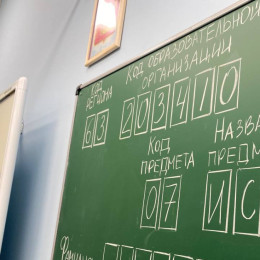 КОД РЕГИОНА
КОД ОБРАЗОВАТЕЛЬНОЙ
ОРГАНИЗАЦИИ
63
203410
КОД
ПРЕДМЕТА
НАЗВ
ПРЕДМ
07
ИС